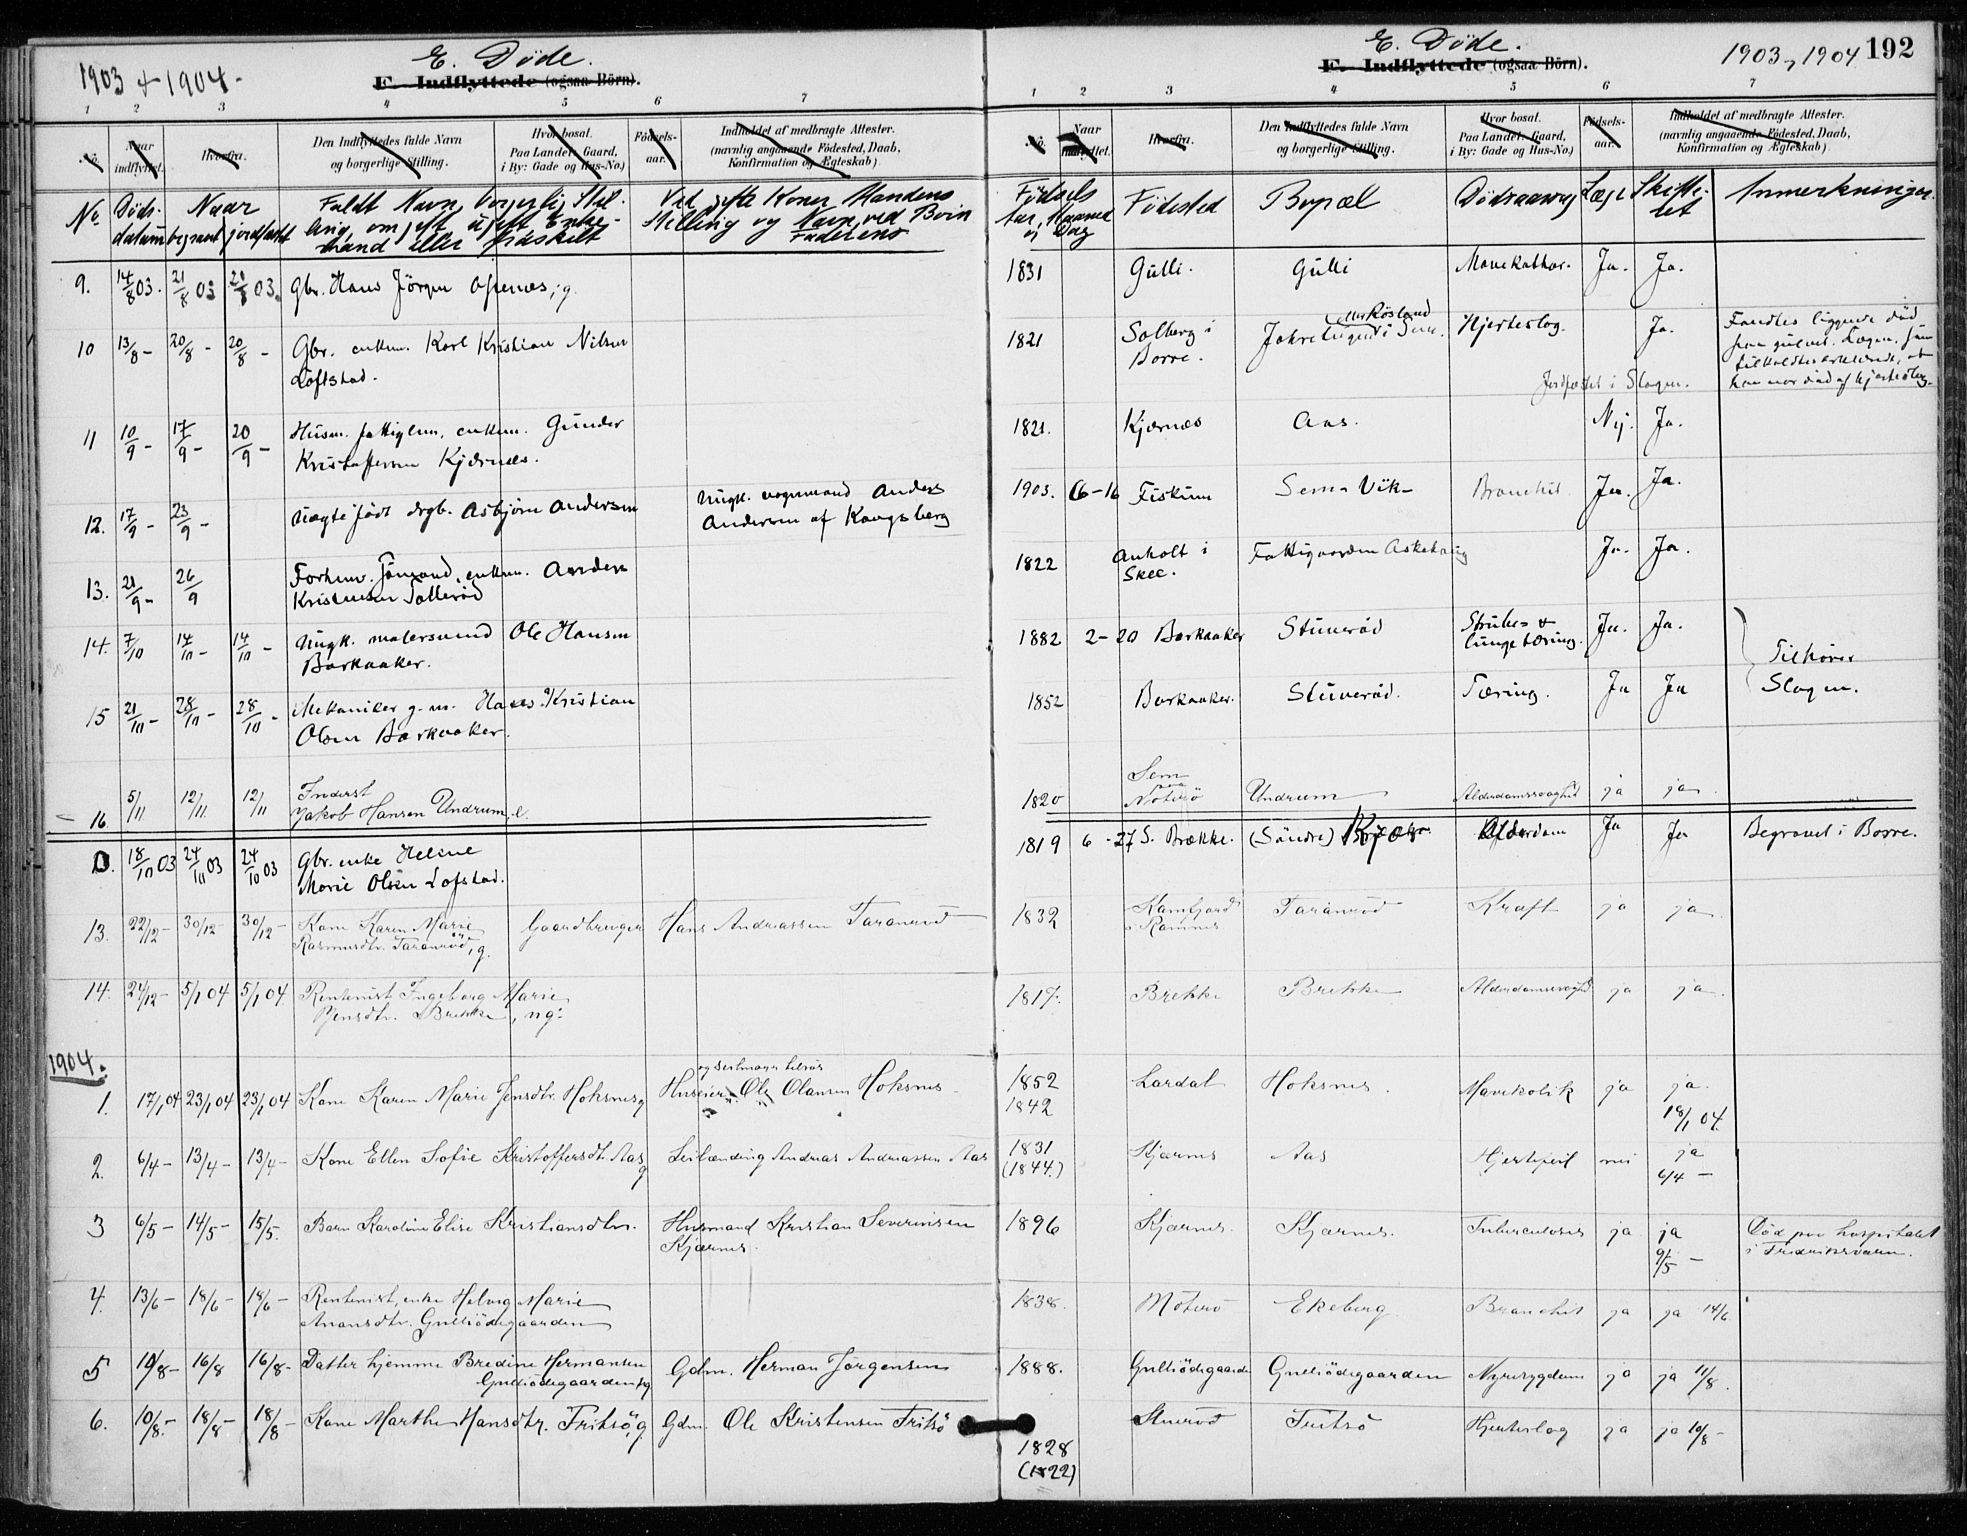 1903 & 1904 -
E. Døde.
F. Indflyttede (ogsaa Börn).
1 2 3 4 5 6 7
No.
Naar indflyttet.
Hvorfra.
Den Indflyttedes fulde Navn
og borgerlige Stilling.
Hvor bosat.
Paa Landet: Gaard,
i By: Gade og Hus-No.)
Födsels-
aar.
Indholdet af medbragte Attester.
(navnlig angaaende Födested, Daab,
Konfirmation og Ægteskab)
No Døds-
datum
Naar
begravet jordfæstet
Fuldt Navn, borgerlig Stil-
ling, om gift ugift Enke-
mand eller fraskilt
Ved gifte Koner Mandens
Stilling og Navn, ved Børn
Faderens
9. 14/8 03. 21/8 03 21/8 03. Gbr. Hans Jörgen Aspenæs, g.
10 13/8 - 20/8 - 20/8 - Gbr. enkem. Karl Kristian Nilsen
Löfstad.
11 10/9 - 17/9 - 20/9 - Husm. fattiglem, enkem. Gunder
Kristoffersen Kjærnæs.
12. 17/9 - 23/9 - Uægte født drgb. Asbjörn Andersen
Ungk. vognmand Anders
Andersen af Kongsberg
13. 21/9 - 26/9 Forhenv. Sömand, enkem. Anders
Kristensen Tollerød
14. 7/10 14/10 - 14/10 - Ungk. malersvend Ole Hansen
Barkaaker.
15 21/10 - 28/10 - 28/10 - Mekaniker g. m. Hans Kristian
Olsen Barkaaker.
16. 5/11 12/11 12/11 Inderst
Jakob Hansen Undrum, e.
18/10 03 24/10 03 24/10 03 Gbr. enke Heline
Marie Olsen Lofstad.
13. 22/12 - 30/12 - 30/12 - Kone Karen Marie
Rasmusdtr. Taranrød, g.
Gaardbruger Hans Andreassen Taranrød
14. 24/12 - 5/1 04 5/1 04. Rentenist Ingeborg Marie
Jensdtr. Brekke, ug.
1904.
1. 17/1 04 23/1 04 23/1 04 Kone Karen Marie Jensdtr. Hoksnes g
Huseier Ole Olausen Hoksnes
2. 6/4 - 13/4 - 13/4 - Kone Ellen Sofie Kristoffersdt. Aas
g
Leilænding Andreas Andreassen Aas
3 6/5 - 14/5 - 15/5. Barn Karoline Elise Kristiansdtr.
Husmand Kristian Severinsen
Kjærnes.
4. 13/6 - 18/6 - 18/6 - Rentenist, enke Helvig Marie
Anansdtr. Gulliödegaarden
5 10/8 - 16/8 16/8 - Datter hjemme Bredine Hermansen
Gulliödegaarden ug
Gdm. Herman Jörgensen
6. 10/8 - 18/8 - 18/8 - Kone Marthe Hansdtr. Fritsö, g. Gdm. Ole Kristensen Fritsö
E. Döde.
F. Indflyttede (ogsaa Börn).
1903, 1904 192
1 2 3 4 5 6 7
No.
Naar
indflyttet.
Hvorfra.
Den Indflyttedes fulde Navn
og borgerlige Stilling.
Hvor bosat.
Paa Landet: Gaard,
i By: Gade og Hus-No.)
Födsels-
aar.
Indholdet af medbragte Attester.
(navnlig angaaende Födested, Daab,
Konfirmation og Ægteskab).
Fødsels
Aar, Maaned
og Dag
Fødested Bopæl Dødsaarsag Læge Skifte-
ret Anmerkninger.
1831 Gulli. Gulli Mavekathar. Ja. Ja.
1821 Solberg i
Borre. i Sem. Hjerteslag. Ja.
Fandtes liggende död
paa gulvet. Lægen
han var död af hjerteslag.
Jordfæstet i Slagen.
1821. Kjærnæs Aas. Nej. Ja.
1903. 6 - 16 Fiskum Sem Vik - Bronchit Ja. Ja.
1822 Anholt i
Skee. Fattiggaarden Askehaug Ja. Ja.
1882 2 - 20 Barkaaker Stuverød Strube- &
lungetæring. Ja. Ja.
1852 Barkaaker. Stuverød. Tæring. Ja Ja
Tilhører
Slagen.
1820 Sem
Nøterø Undrum Alderdomssvaghed ja ja.
1819 6 - 27 S. Brække. (Söndre) Alderdom Ja Ja Begravet i Borre.
1832 Kamfjord
i Ramnes Taranrød Kræft ja ja
1817. Brekke Brekke Alderdomssvaghed ja ja.
1852
1842 Lardal Hoksnes. Mavekolik ja ja.
18/1 04.
1831
(1844.) Kjærnes Aas Hjertefeil nei ja
6/4 -
1896 Kjærnes. Kjærnes. Tuberculoses ja ja
9/5 - Död paa hospitalet
i Fredriksværn.
1838. Nöterö Ekeberg Bronchit ja ja 14/6.
1888. Gulliödegaarden Gulliödegaarden Nyresygdom ja ja 11/8.
1828
(1822) Stuerød Fritsö Hjerteslag ja ja 10/8 -